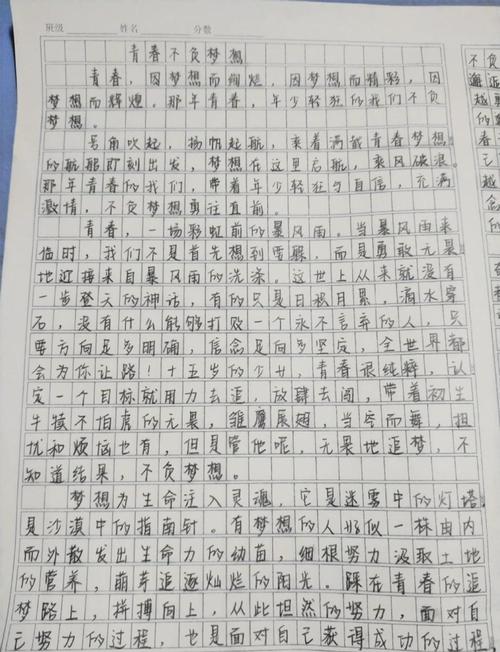 班级 姓名 分数
青春不负梦想
青春，因梦想而绚烂，因梦想而精彩，因
梦想而辉煌。那年青春，年少轻狂的我们不负
梦想。
号角吹起，扬帆起航，乘着满载青春梦想
的航船即刻出发，梦想在这里启航，乘风破浪。
那年青春的我们，带着年少轻狂与自信，充满
激情，不负梦想勇往直前。
青春，一场彩虹前的暴风雨。当暴风雨来
临时，我们不是首先想到要躲，而是勇敢无畏
地迎接来自暴风雨的洗涤。这世上从来就没有
一步登天的神话，有的只是日积月累，滴水穿
石，没有什么能够打败一个永不言弃的人，只
要方向足多明确，信念足向多坚定，全世界都
会为你让路！十五岁的少女，青春很纯粹，认
定一个目标就用力去追，放肆去闯，带着初生
牛犊不怕虎的无畏，雏鹰展翅，当空而舞，担
忧和烦恼也有，但是管他呢，无畏地追梦，不
知道结果，不负梦想。
梦想为生命注入灵魂，它是迷雾中的灯塔
是沙漠中的指南针。有梦想的人好似一株由内
而外散发出生命力的幼苗，细根努力汲取土地
的营养，萌芽追逐灿烂的阳光。踩在青春的追
梦路上，拼搏向上，从此坦然的努力，面对自
己努力的过程，也是面对自己获得成功的过程
不负
邂逅
越
的
春
己
越
念
的